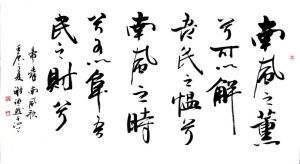 南風之薰
兮可以解
吾民之愠兮
南風之時
兮可以阜吾
民之財兮
南風歌